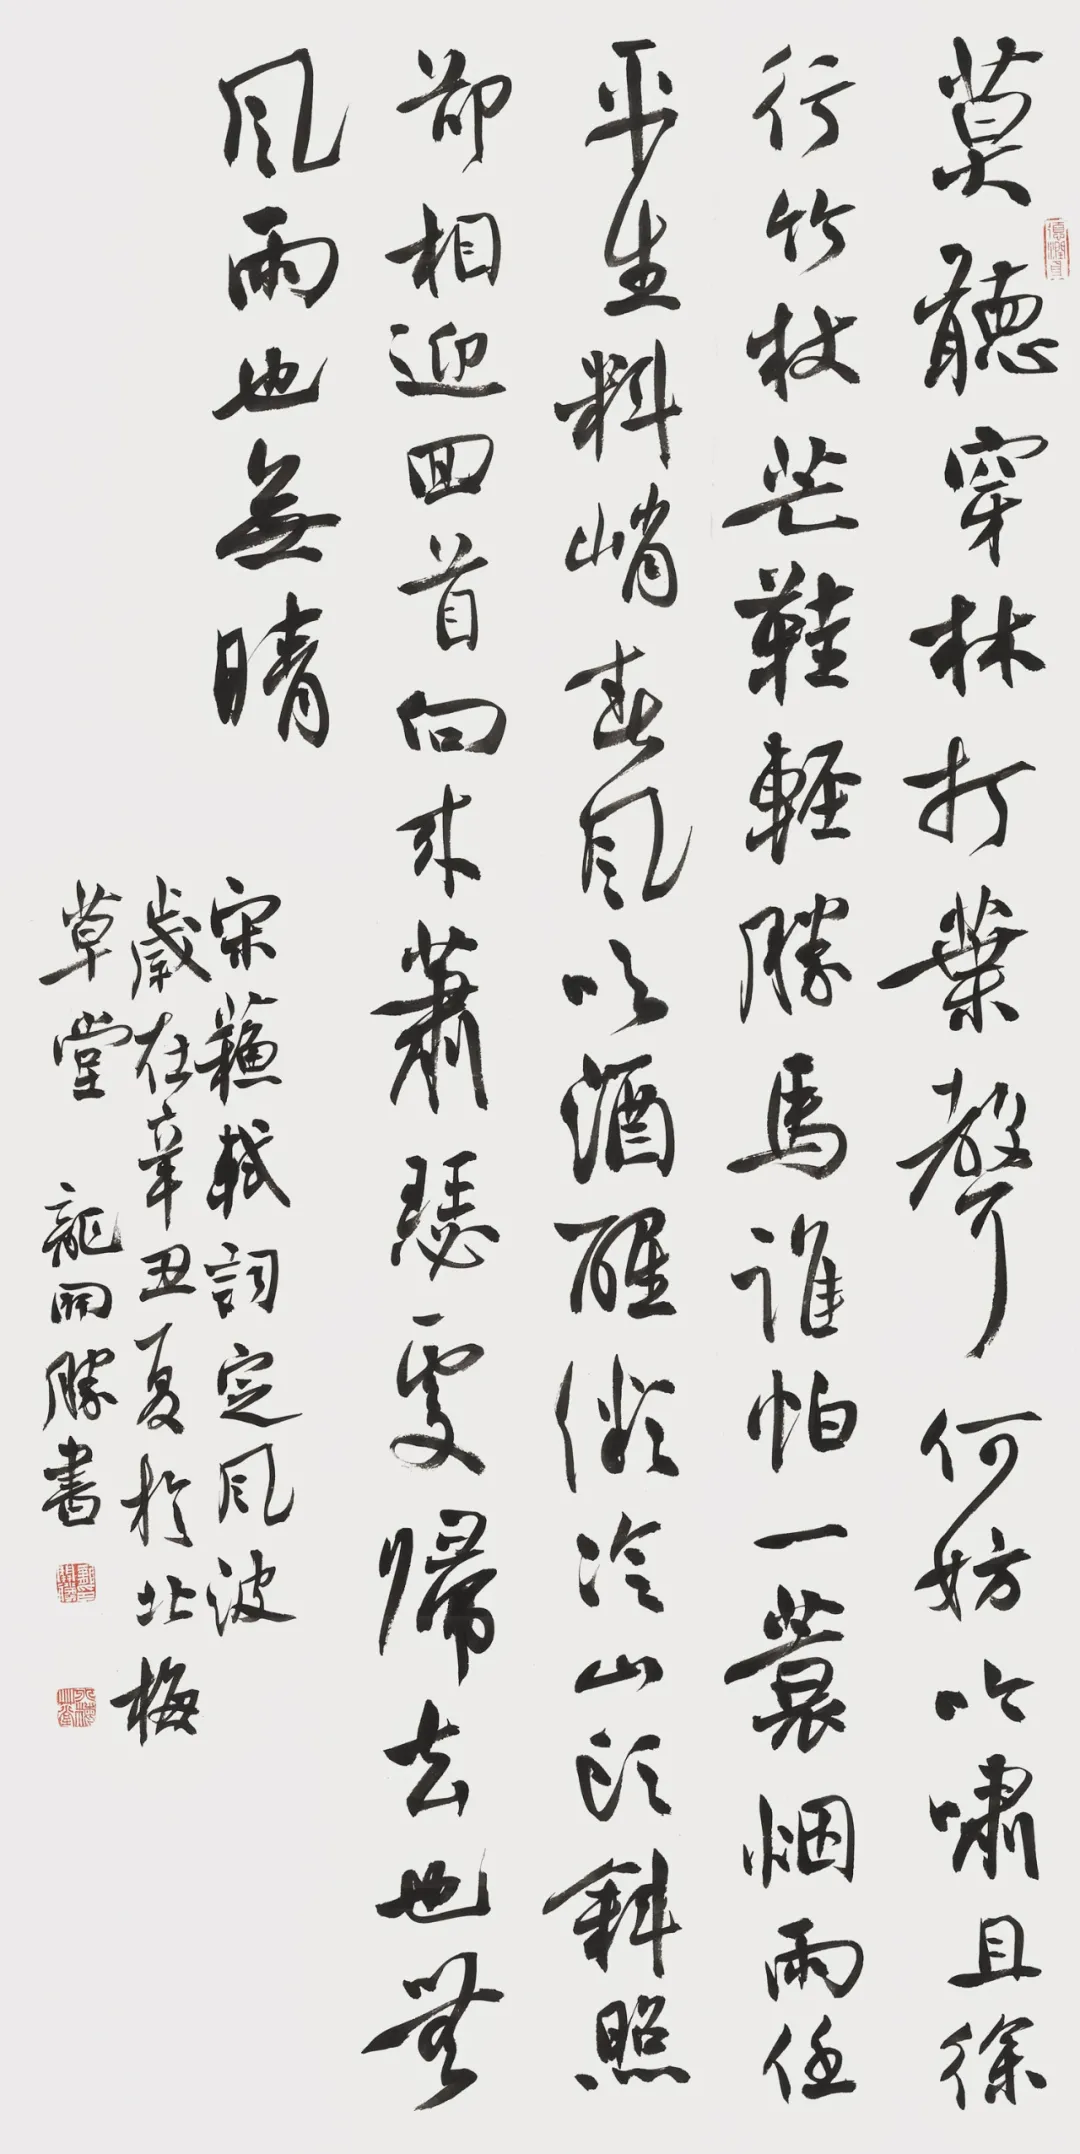 莫聽穿林打葉聲何妨吟嘯且徐
行竹杖芒鞋輕勝馬誰怕一蓑烟雨任
平生料峭春風吹酒醒微冷山頭斜照
却相迎回首向来蕭瑟處歸去也無
風雨也無晴
宋蘇軾詞定風波
歲在辛丑夏於北梅
草堂 龍開勝書